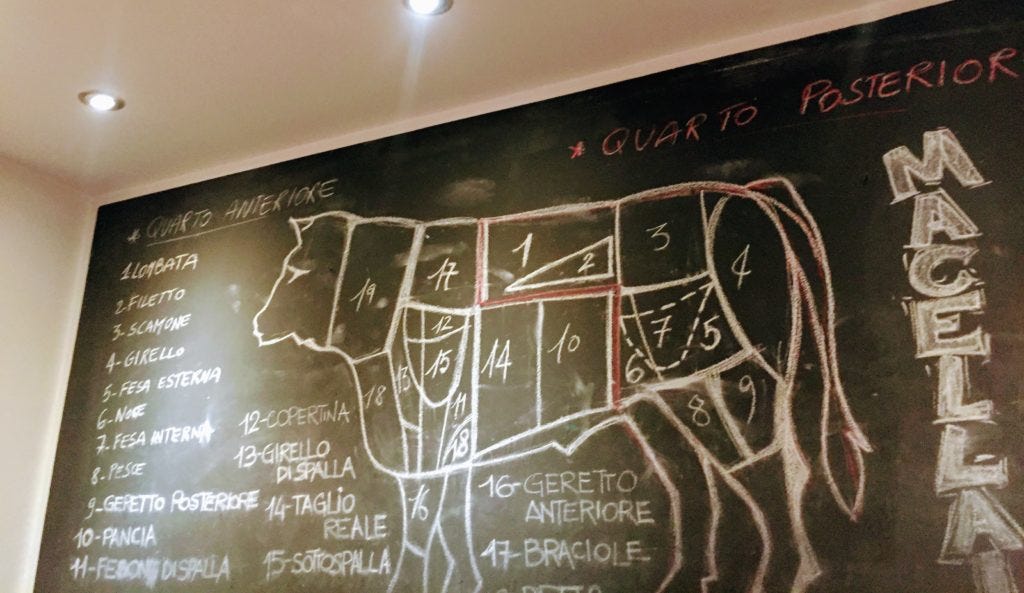 * QUARTO ANTERIORE
* QUARTO POSTERIOR
MACELLA
1 LOMBATA
2-FILETTO
3-SCAMONE
4-GIRELLO
5-FESA ESTERNA
6-NOCE
7-FESA INTERNA
8-PESCE
9-GERETTO POSTERIORE
10-PANCIA
11-FESONE DI SPALLA
12-COPERTINA
13-GIRELLO
DI SPALLA
14-TAGLIO
REALE
15-SOTTOSPALLA
16-GERETTO
ANTERIORE
17-BRACIOLE
19
17
1
2
3
4
12
15
13
18
11
18
14
10
7
5
6
8
9
16